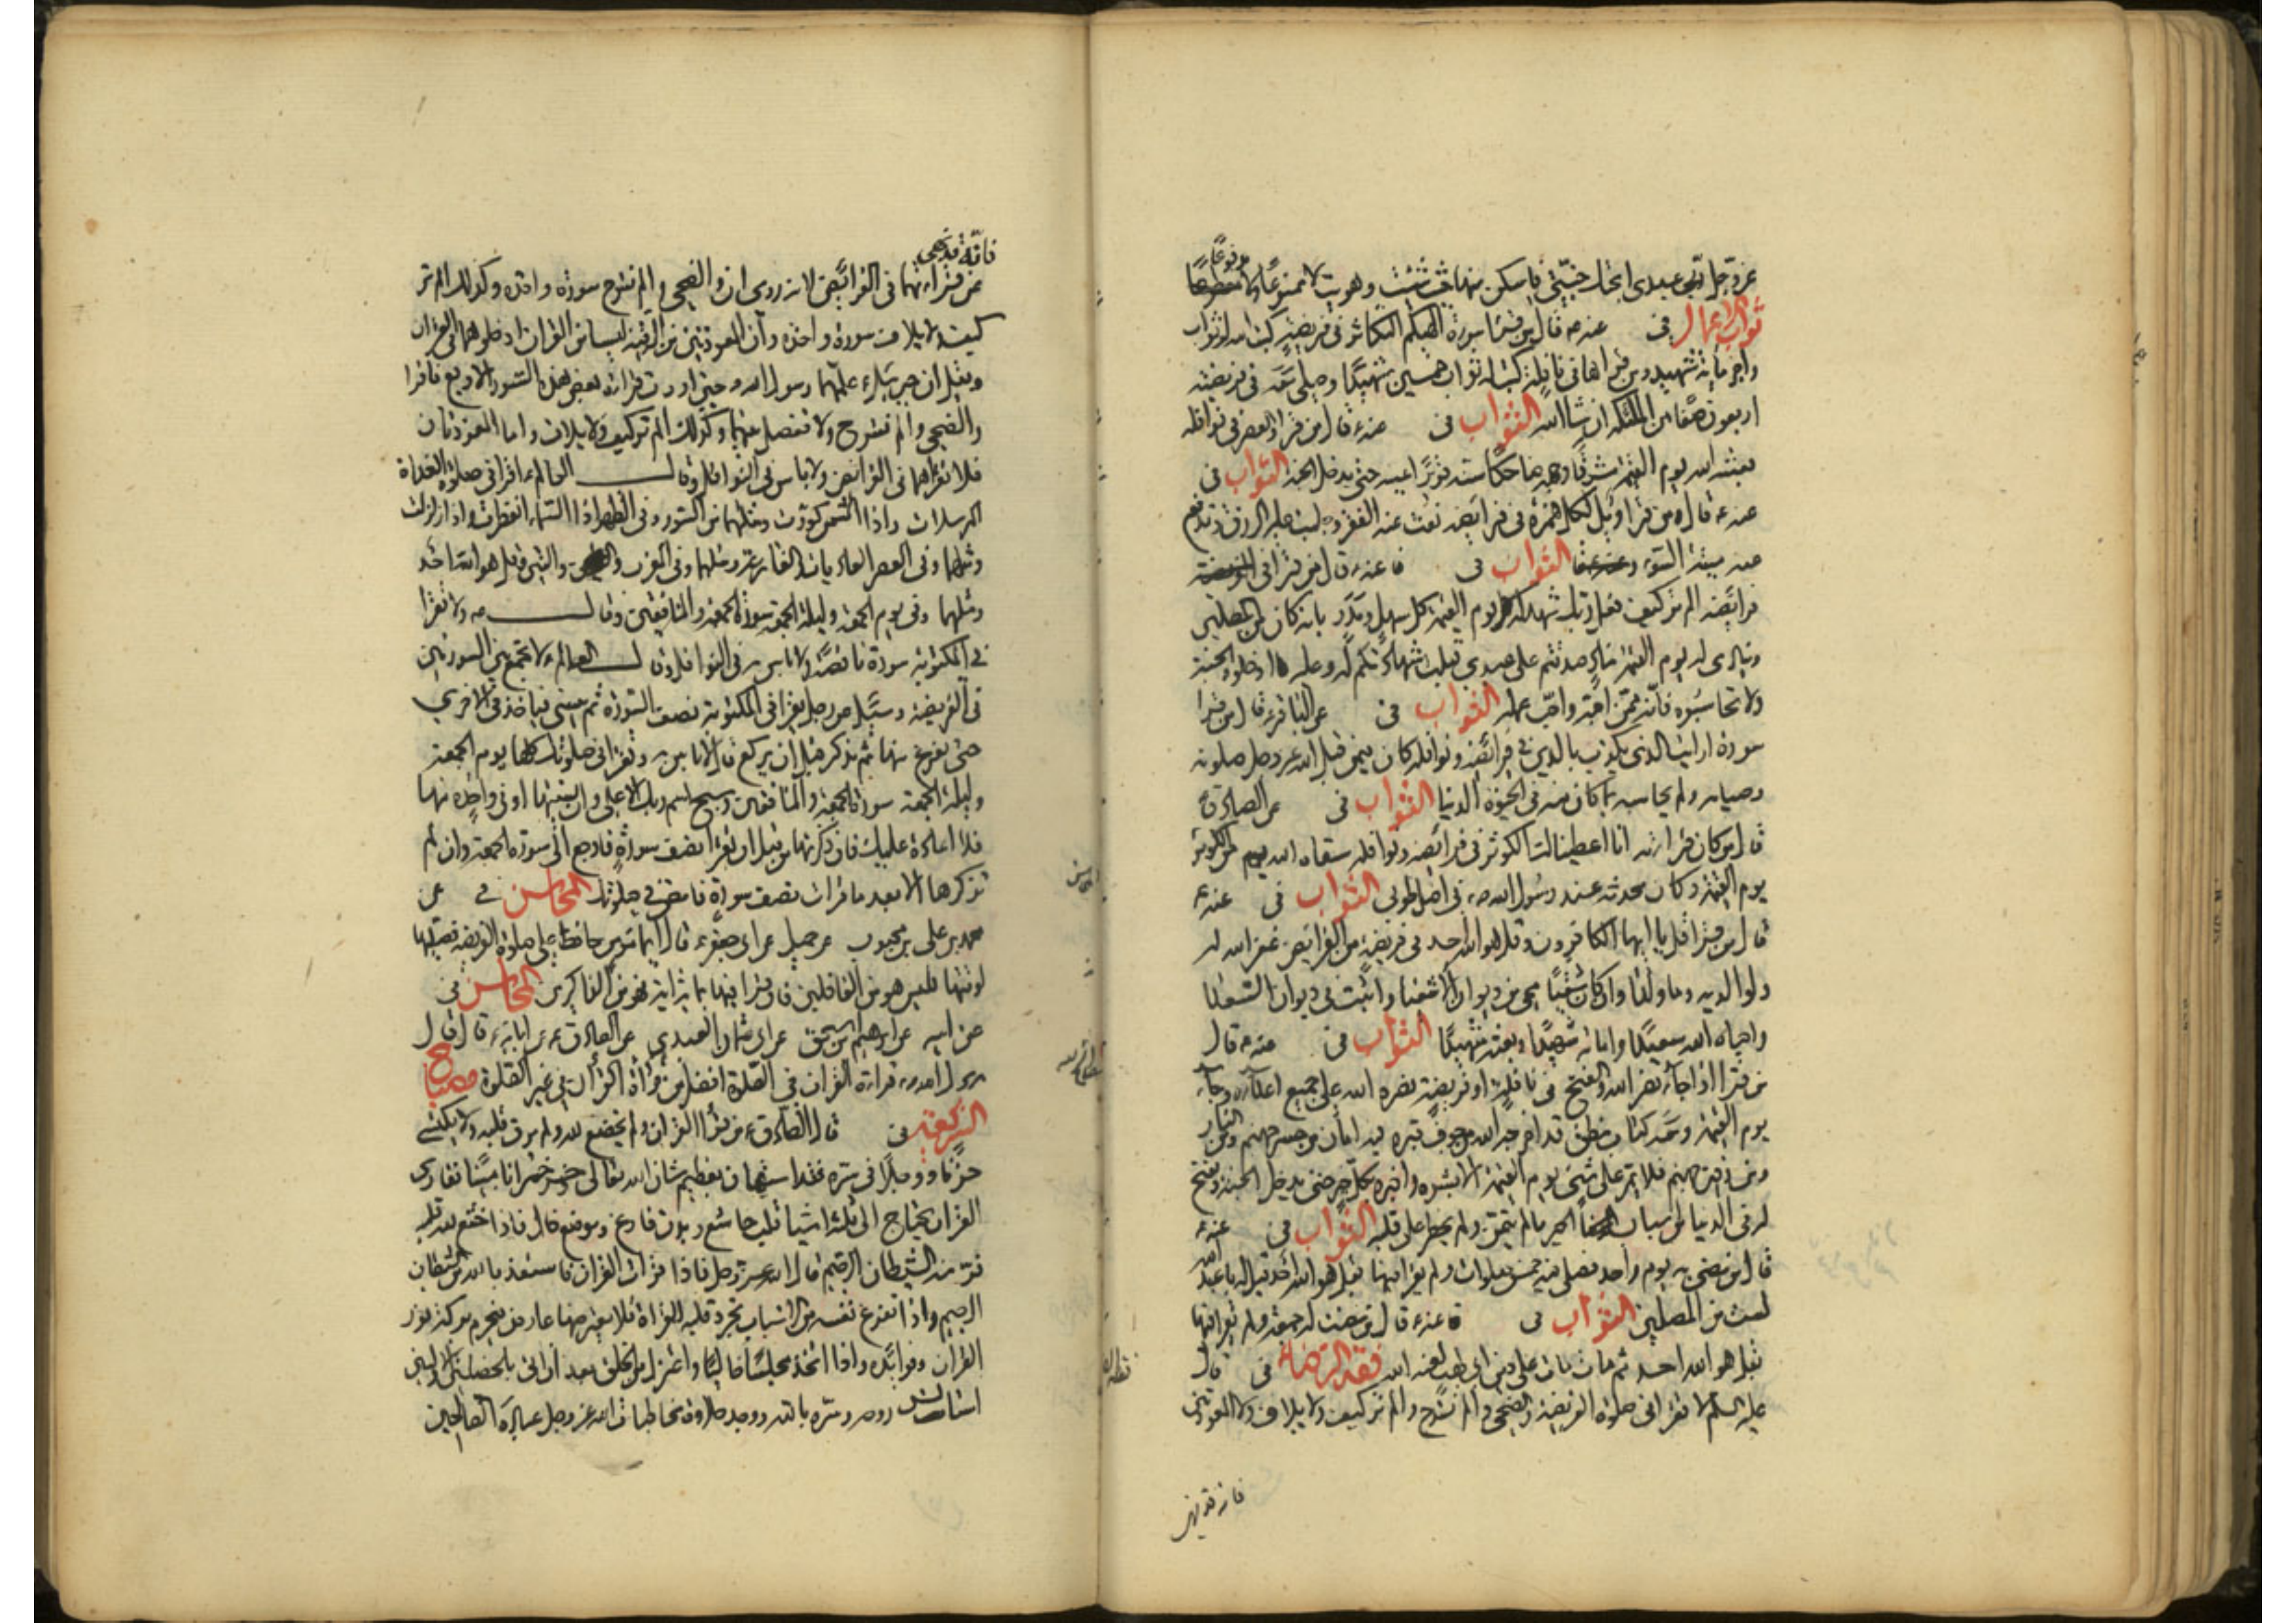 عز وجل انى عبدى ادخل جنتى فاسكن منها حيث شئت وهويت لا ممنوعا ولا مدفوعا
ثواب الاعمال فى عنه ع قال من قرا سورة الهيكم التكاثر فى فريضة كتب الله له ثواب
واجر مائة شهيد ومن قراها فى نافلة كتب له ثواب خمسين شهيدا وصلى معه فى فريضته
اربعون صفا من الملئكة ان شا الله الثواب فى عنه ع قال من قرا والعصر فى نوافله
بعثه الله يوم القيمة مشرقا وجهه ضاحكا سنه قريرا عينه حتى يدخل الجنة الثواب فى
عنه ع قال من قرا ويل لكل همزة فى فرائضه نفت عنه الفقر وجلبت عليه الرزق وتدفع
عنه ميتة السوء الثواب فى عنه ع قال من قرا فى
فرائضه الم تر كيف فعل ربك شهد له يوم القيمة كل سهل ومدر بانه كان من المصلين
وينادى له يوم القيمة مناد صدقتم على عبدى قبلت شهادتكم له وعليه ادخلوه الجنة
ولا تحاسبوه فانه ممن احبه واحب عمله الثواب فى عن الباقر ع قال من قرا
سورة ارايت الذى يكذب بالدين فى فرائضه ونوافله كان فيمن قبل الله عز وجل صلوته
وصيامه ولم يحاسبه بما كان منه فى الحيوة الدنيا الثواب فى عن الصادق ع
قال من كان قراءته انا اعطيناك الكوثر فى فرائضه ونوافله سقاه الله من الكوثر
يوم القيمة وكان محدثه عند رسول الله ص فى اصل طوبى الثواب فى عنه ع
قال من قرا قل يا ايها الكافرون وقل هو الله احد فى فريضة من الفرائض غفر الله له
ولوالديه وما ولدا وان كان شقيا محى من ديوان الاشقيا واثبت فى ديوان السعدا
واحياه الله سعيدا واماته شهيدا وبعثه شهيدا الثواب فى عنه ع قال
من قرا اذا جآء نصر الله والفتح فى نافلة او فريضة نصره الله على جميع اعدآئه وجآء
يوم القيمة ومعه كتاب ينطق قد اخرجه الله من جوف قبره فيه امان من جسر جهنم ومن النار
ومن زفير جهنم فلا يمر على شىء يوم القيمة الا بشره واخبره بكل خير حتى يدخل الجنة ويفتح
له فى الدنيا من اسباب الخير ما لم يتمن ولم يخطر على قلبه الثواب فى عنه ع
قال من مضى به يوم واحد فصلى فيه خمس صلوات ولم يقرا فيها بقل هو الله احد قيل له يا عبد الله
لست من المصلين الثواب فى عنه ع قال من مضت له جمعة ولم يقرا فيها
بقل هو الله احد ثم مات مات على دين ابى لهب لعنه الله فقه الرضا ع فى قال
عليه السلم لا تقرا فى صلوة الفريضة والضحى والم نشرح والم تر كيف ولايلاف ولا المعوذتين
فانه قد نهى
فانه قد نهى
عن قراءتهما فى الفرائض لانه روى ان والضحى والم نشرح سورة واحدة وكذلك الم تر
كيف ولايلاف سورة واحدة وان المعوذتين من الرقية ليسا من القران ادخلوهما فى القران
وقيل ان جبرئيل ع علمهما رسول الله ص حتى اردت قراءة بعض هذه السور الاربع فاقرا
والضحى والم نشرح ولا تفصل بينهما وكذلك الم تر كيف ولايلاف واما المعوذتان
فلا تقراهما فى الفرائض ولا باس فى النوافل وقال العالم ع اقرا فى صلوة الغداة
المرسلات واذا الشمس كورت ومثلهما من السور وفى الظهر اذا السماء انفطرت واذا زلزلت
ومثلهما وفى العصر العاديات والقارعة ومثلهما وفى المغرب والتين وقل هو الله احد
ومثلهما وفى يوم الجمعة وليلة الجمعة سورة الجمعة والمنافقين وقال ع ولا تقرا
فى المكتوبة سورة ناقصة ولا باس به فى النوافل وقال العالم ع لا تجمع بين السورتين
فى الفريضة وسئل عن رجل يقرا فى المكتوبة نصف السورة ثم ينسى فياخذ فى الاخرى
حتى يفرغ منها ثم يذكر قبل ان يركع قال لا باس به وتقرا فى صلوتك كلها يوم الجمعة
وليلة الجمعة سورة الجمعة والمنافقين وسبح اسم ربك الاعلى وان نسيتها او فى واحدة منها
فلا اعادة عليك فان ذكرتها من قبل ان تقرا نصف سورة فارجع الى سورة الجمعة وان لم
تذكرها الا بعد ما قرات نصف سورة فامض فى صلوتك المحاسن فى عن
محمد بن على بن محبوب عن جميل عن ابى جعفر ع قال ايما مؤمن حافظ على صلوة الفريضة فصلاها
لوقتها فليس هو من الغافلين فان قرا فيها بمائة اية فهو من الذاكرين المحاسن فى
عن ابيه عن ابرهيم بن اسحق عن ابى عثمان العبدى عن الصادق ع عن ابائه ع قال قال
رسول الله ص قراءة القران فى الصلوة افضل من قراءة القران فى غير الصلوة مصباح
الشريعة فى قال الصادق ع من قرا القران ولم يخضع لله ولم يرق قلبه ولا يكتسى
حزنا ووجلا فى سره فقد استهان بعظيم شان الله تعالى وخسر خسرانا مبينا فقارى
القران يحتاج الى ثلثة اشيا قلب خاشع وبدن فارغ وموضع خال فاذا خشع لله قلبه
فر منه الشيطان الرجيم قال الله عز وجل فاذا قرات القران فاستعذ بالله من الشيطان
الرجيم واذا تفرغ نفسه من الاسباب تجرد قلبه للقراءة فلا يعترضه عارض فيحرم بركة نور
القران وفوائده واذا اتخذ مجلسا خاليا واعتزل من الخلق بعد ان اتى بالخصلتين الاوليين
استانس روحه وسره بالله ووجد حلاوة مخاطبات الله عز وجل عباده الصالحين